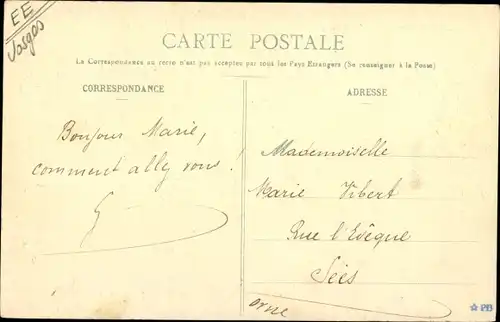 EE
CARTE POSTALE
La Correspondance au recto n'est pas acceptée par tous les Pays Etrangers (Se renseigner à la Poste)
CORRESPONDANCE
ADRESSE
Bonjour Marie,
comment allez vous !
Mademoiselle
Marie Vibert
Rue l'Evêque
Sées
Orne
PB